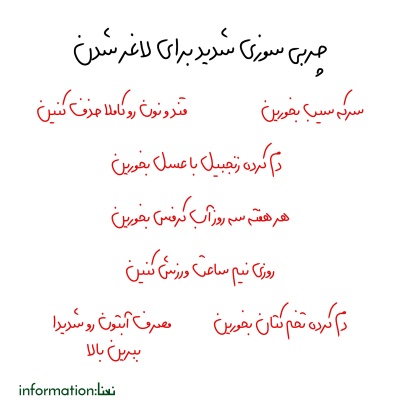 چربی سوزی شدید برای لاغر شدن
سرکه سیب بخورین
قند و نون رو کاملا حذف کنین
دم کرده زنجبیل با عسل بخورین
هر هفته سه روز آب کرفس بخورین
روزی نیم ساعت ورزش کنین
دم کرده تخم کتان بخورین
مصرف آبتون رو شدیدا
ببرین بالا
information:نعنا